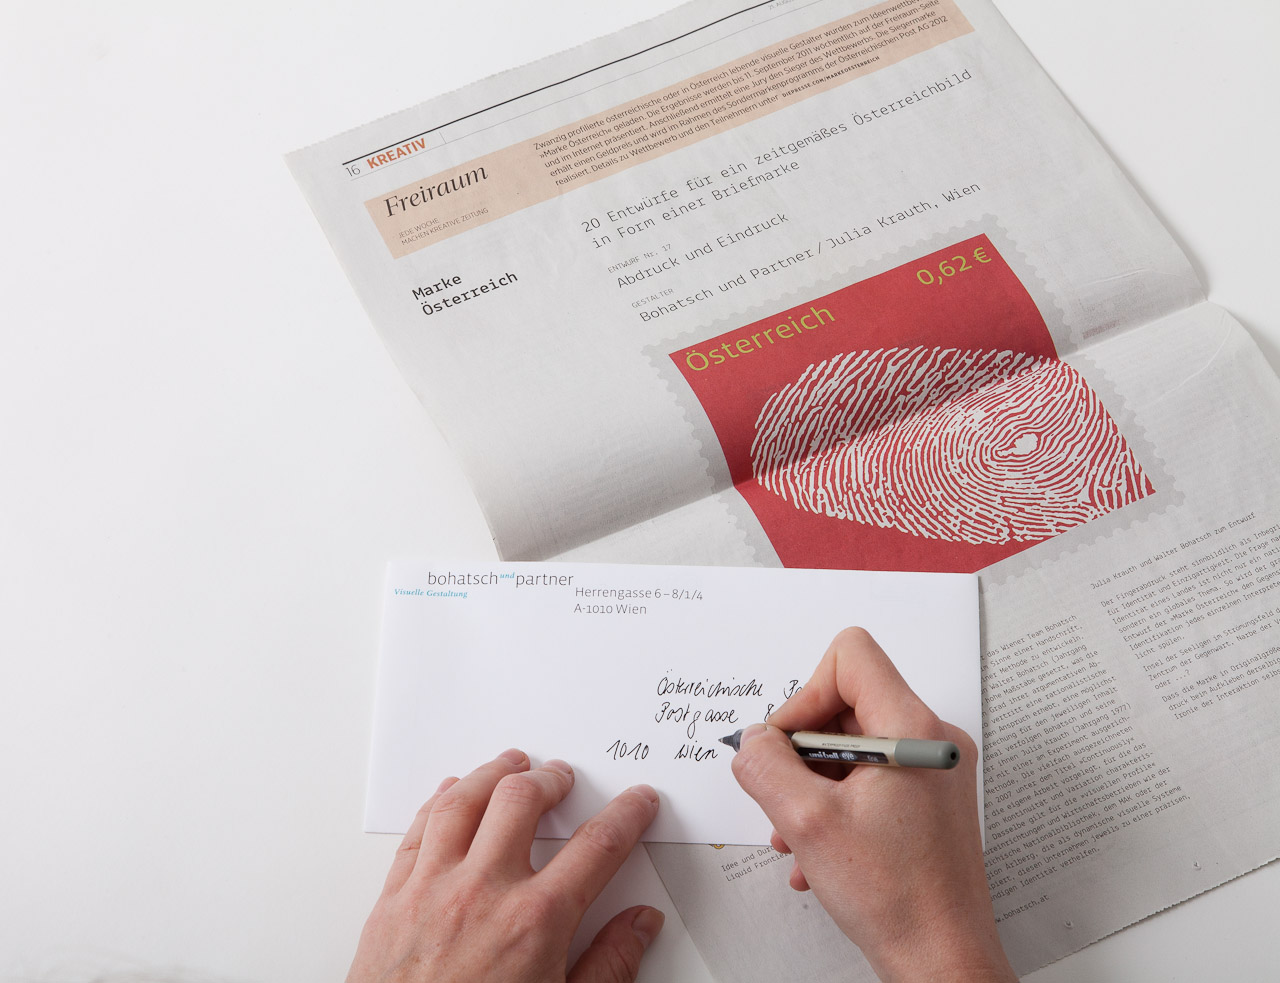 16 KREATIV
Freiraum
JEDE WOCHE
MACHEN KREATIVE ZEITUNG
Zwanzig profilierte österreichische oder in Österreich lebende visuelle Gestalter wurden zum Ideenwettbew
»Marke Österreich« geladen. Die Ergebnisse werden bis 11. September 2011 wöchentlich auf der Freiraum-Seite
und im Internet präsentiert. Anschließend ermittelt eine Jury den Sieger des Wettbewerbs. Die Siegermarke
erhält einen Geldpreis und wird im Rahmen des Sondermarkenprogramms der Österreichischen Post AG 2012
realisiert. Details zu Wettbewerb und den Teilnehmern unter DIEPRESSE.COM/MARKEOESTERREICH
Marke
Österreich
20 Entwürfe für ein zeitgemäßes Österreichbild
in Form einer Briefmarke
ENTWURF NR. 17
Abdruck und Eindruck
GESTALTER
Bohatsch und Partner / Julia Krauth, Wien
Österreich
0,62 €
bohatsch und partner
Visuelle Gestaltung
Herrengasse 6 – 8/1/4
A-1010 Wien
Österreichische Po
Postgasse 8
1010 Wien
uni-ball eye
fine
Julia Krauth und Walter Bohatsch zum Entwurf
Der Fingerabdruck steht sinnbildlich als Inbegri
für Identität und Einzigartigkeit. Die Frage n
Identität eines Landes ist nicht nur ein nat
sondern ein globales Thema. So wird der g
Entwurf der »Marke Österreich« den Gegen
Identifikation jedes einzelnen Interpre
licht spülen.
Insel der Seeligen im Strömungsfeld
Zentrum der Gegenwart, Narbe der V
oder ...?
Dass die Marke in Originalgröße
druck beim Aufkleben derselb
Ironie der Interaktion selbs
das Wiener Team Bohatsch
Sinne einer Handschrift,
Methode zu entwickeln.
Walter Bohatsch (Jahrgang
hohe Maßstäbe gesetzt, was die
Grad ihrer argumentativen Ab-
vertritt eine rationalistische
en Anspruch erhebt, eine möglichst
sprechung für den jeweiligen Inhalt
el verfolgen Bohatsch und seine
er ihnen Julia Krauth (Jahrgang 1977)
nd mit einer am Experiment ausgerich-
Methode. Die vielfach ausgezeichneten
2007 unter dem Titel »Continuously«
die eigene Arbeit vorgelegt, für die das
von Kontinuität und Variation charakteris-
Dasselbe gilt für die »visuellen Profile«
ureinrichtungen und Wirtschaftsbetrieben wie der
eichische Nationalbibliothek, dem MAK oder der
gion Arlberg, die als dynamische visuelle Systeme
ipiert, diesen Unternehmen jeweils zu einer präzisen,
ndigen Identität verhelfen.
w.bohatsch.at
Idee und Dur
Liquid Frontie